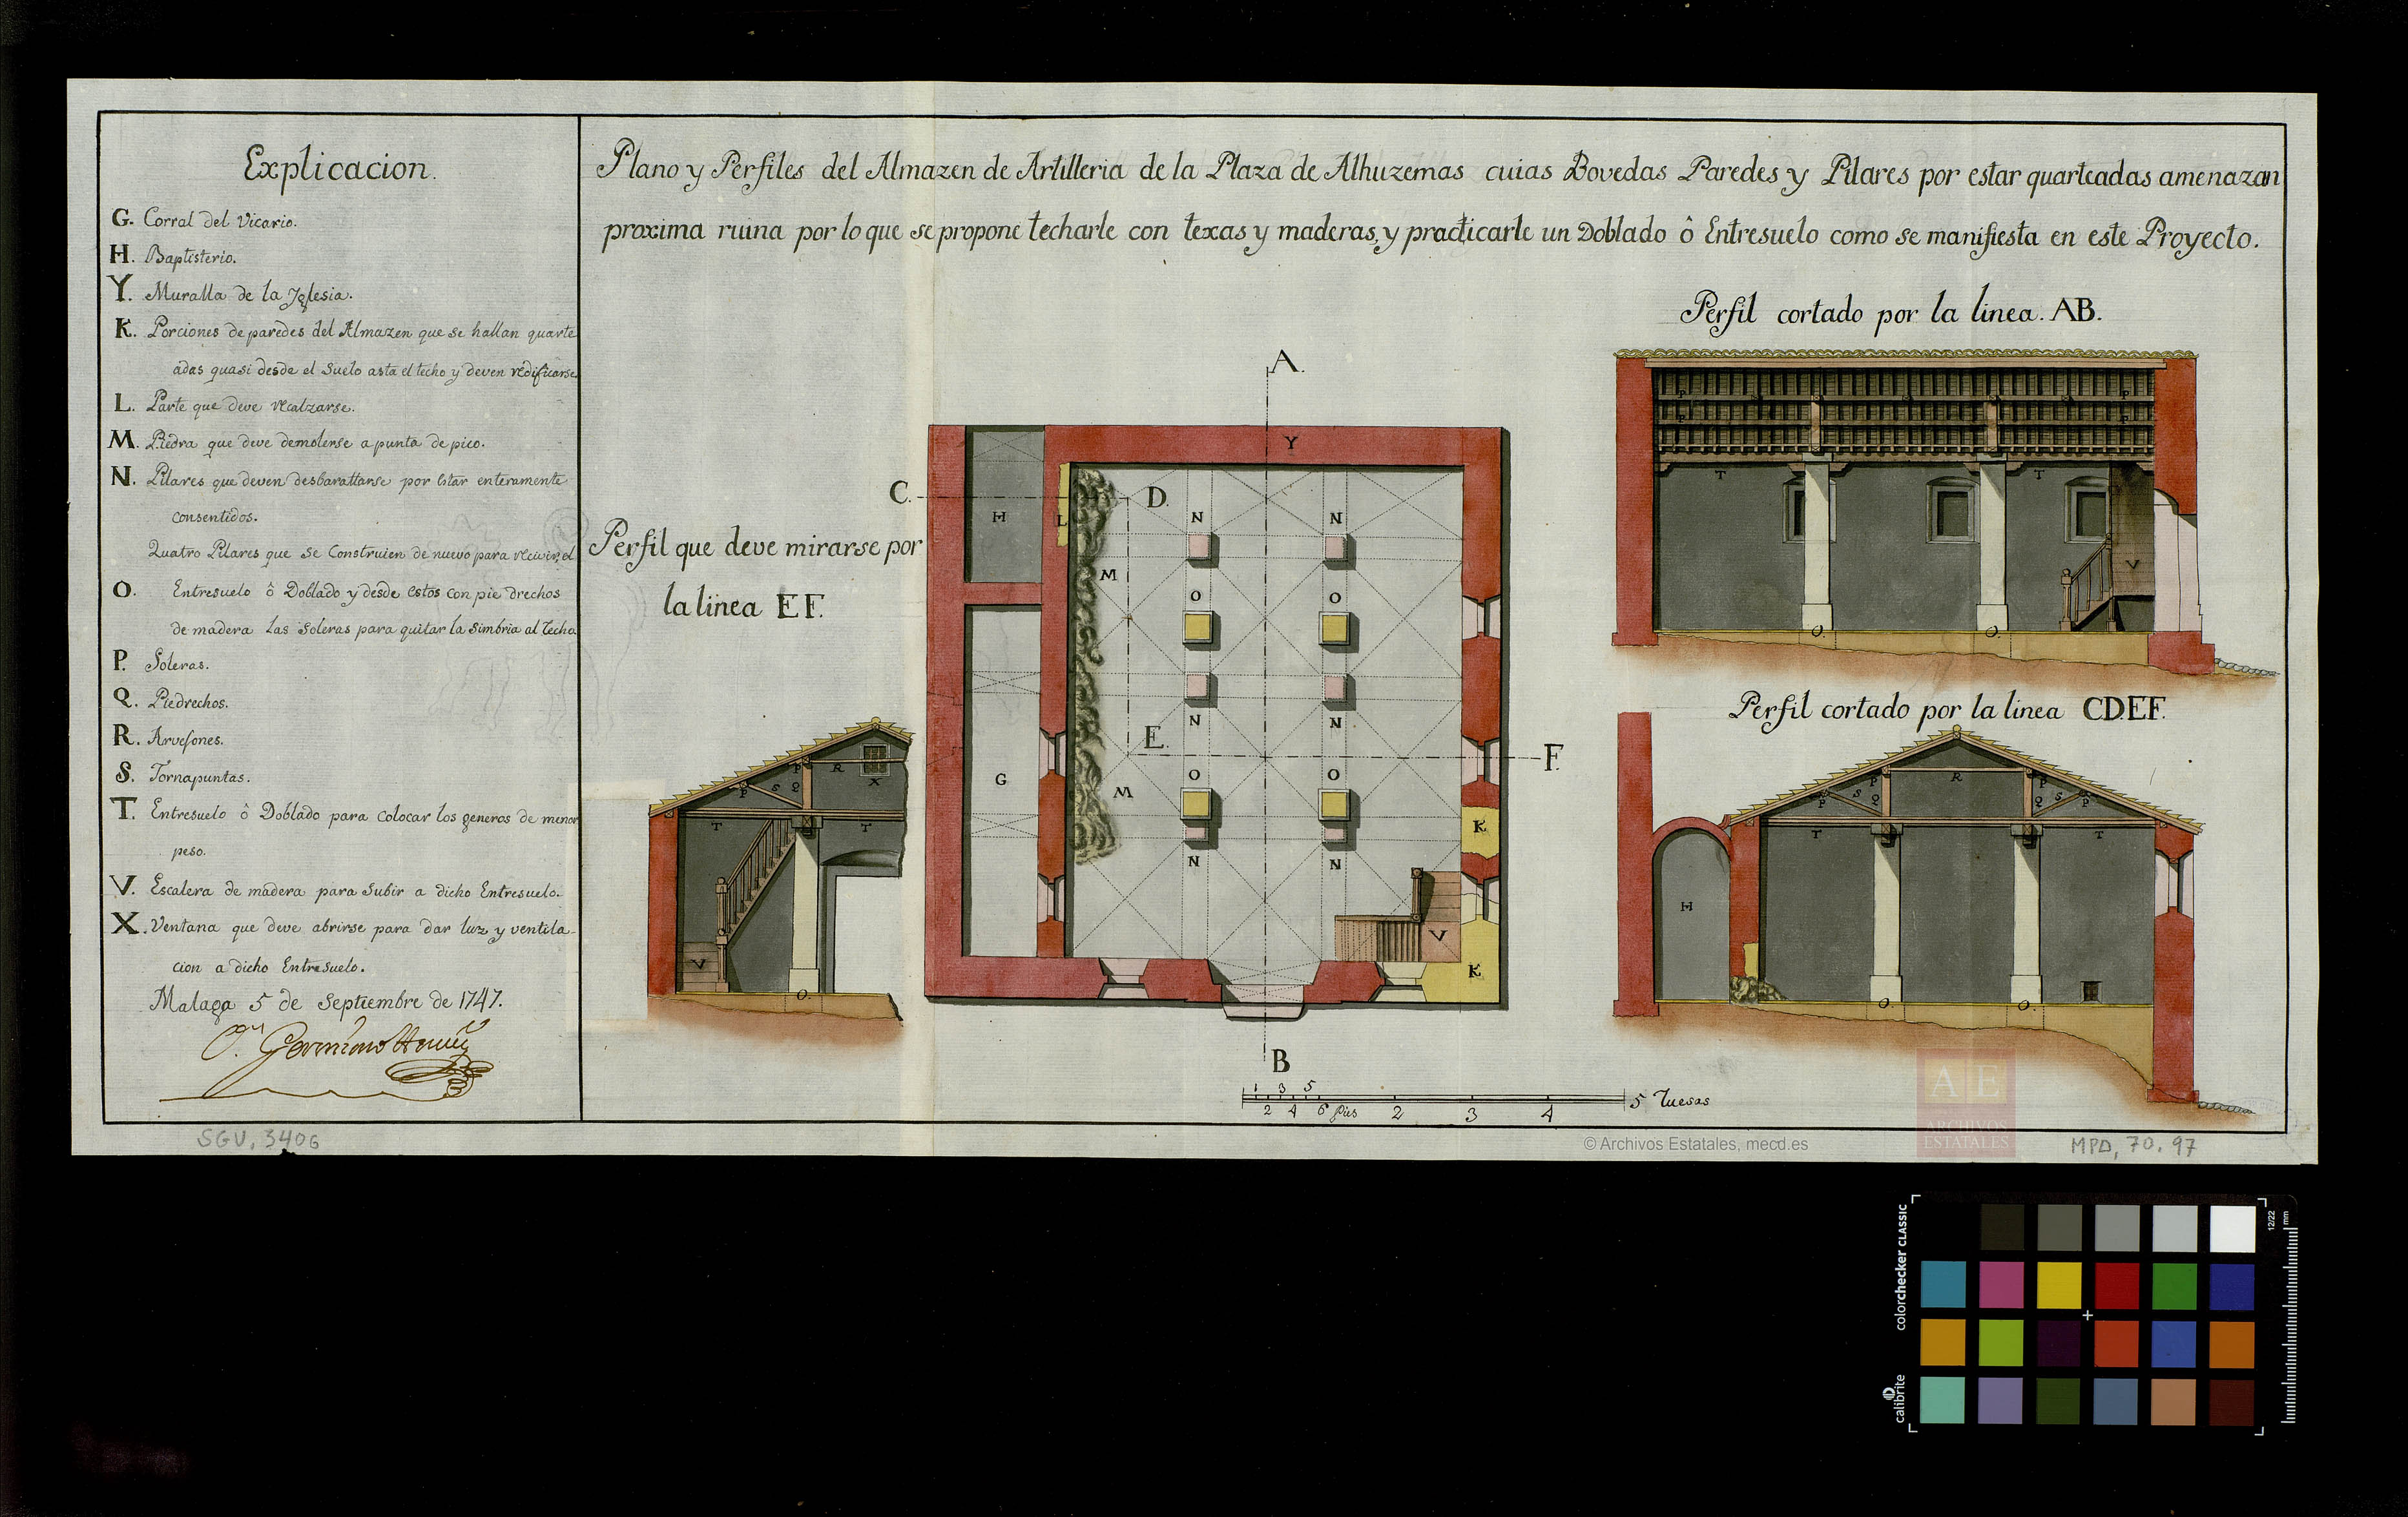 Explicacion.
G. Corral del Vicario.
H. Baptisterio.
Y. Muralla de la Iglesia.
K. Porciones de paredes del Almazen que se hallan quarte
adas quasi desde el Suelo asta el techo y deven redificarse.
L. Parte que deve recalzarse.
M. Piedra que deve demolerse a punta de pico.
N. Pilares que deven desbarattarse por estar enteramente
consentidos.
Quatro Pilares que se Construien de nuevo para recivir el
O. Entresuelo ô Doblado y desde estos con pie drechos
de madera las Soleras para quitar la Simbria al techo
P. Soleras.
Q. Piedrechos.
R. Arvesones.
S. Tornapuntas.
T. Entresuelo ô Doblado para colocar los generos de menor
peso.
V. Escalera de madera para Subir a dicho Entresuelo.
X. Ventana que deve abrirse para dar luz y ventila-
cion a dicho Entresuelo.
Malaga 5 de Septiembre de 1747.
SGV. 3406
Plano y Perfiles del Almazen de Artilleria de la Plaza de Alhuzemas cuias Bovedas Paredes y Pilares por estar quarteadas amenazan
proxima ruina por lo que se propone techarle con texas y maderas, y practicarle un Doblado ô Entresuelo como se manifiesta en este Proyecto.
Perfil que deve mirarse por
la linea EF.
P R X
P S Q
T T
V
O.
A.
Y
C. D.
H L N N
M
O O
N N
E. F.
G O O
M
K
N N
V
K
B
1 3 5
2 4 6 pies 2 3 4 5 Tuesas
Perfil cortado por la linea. AB.
P P
P P
T T
V
O. O.
Perfil cortado por la linea CD.EF.
P R P
P S Q Q S P
T T
H
O. O.
AE
ARCHIVOS
ESTATALES
© Archivos Estatales, mecd.es
MPD, 70. 97
calibrite colorchecker CLASSIC
12/22 mm